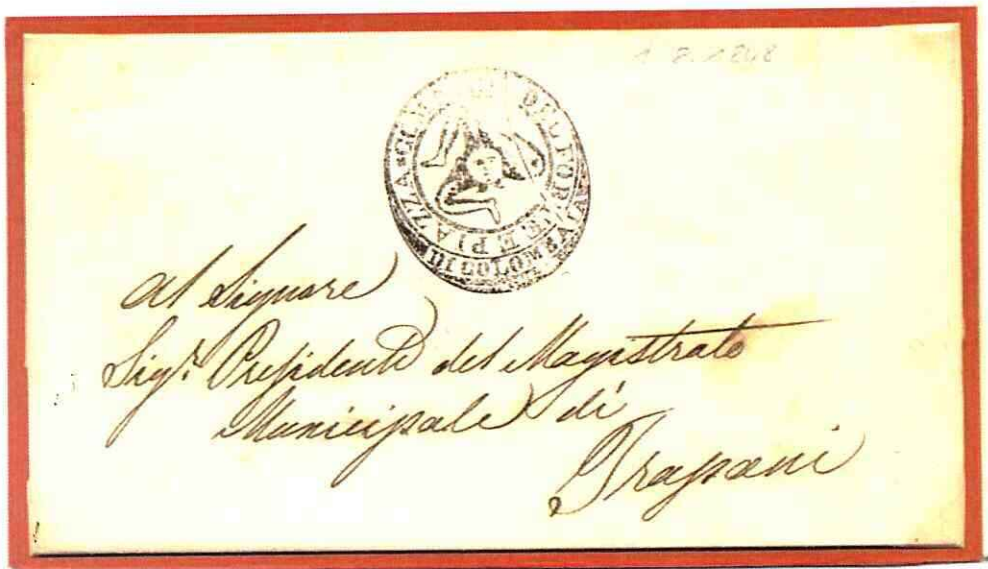 1 8.1848
DEL FORTE E PIAZZA
DI COLOMBAJA
Al Signore
Sig.r Presidente del Magistrato
Municipale di
Trapani